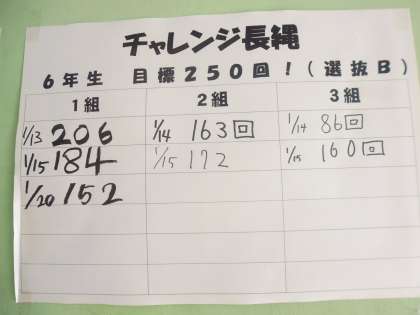 チャレンジ長縄
6年生 目標250回!(選抜B)
1組 2組 3組
1/13 206 1/14 163回 1/14 86回
1/15 184 1/15 172 1/15 160回
1/20 152